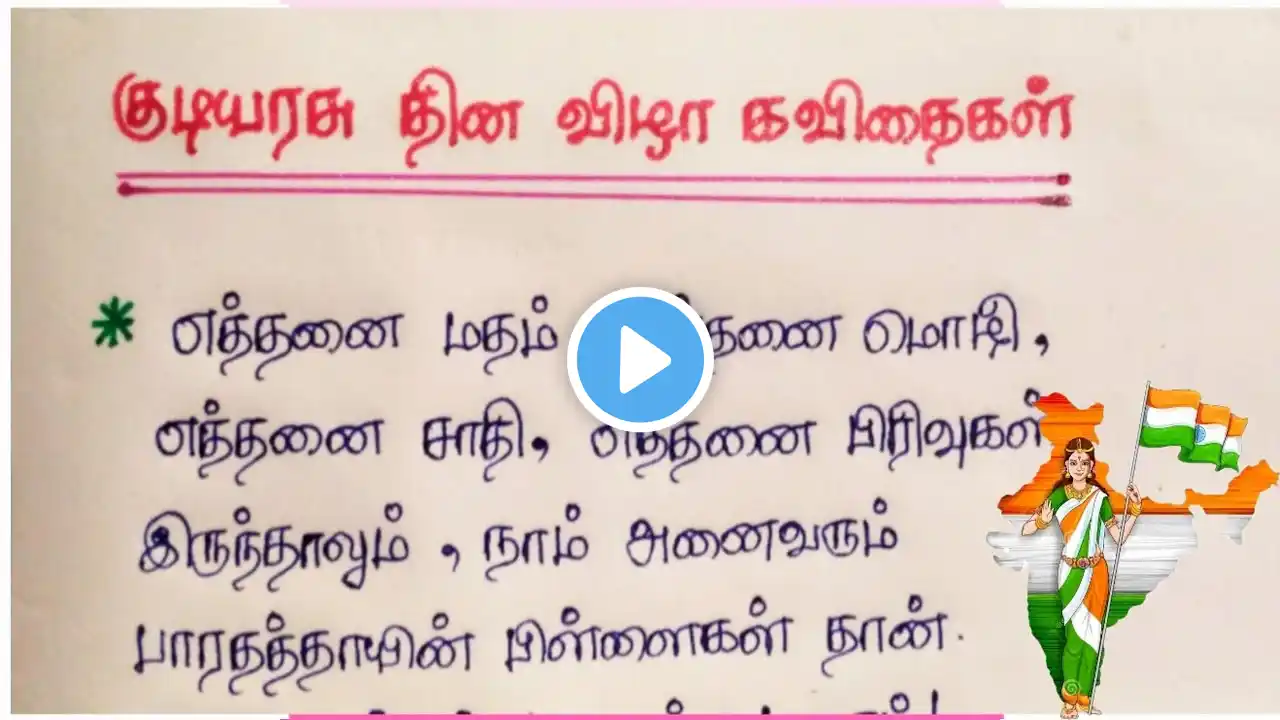 குடியரசு தின விழா கவிதைகள்
* எத்தனை மதம் மொழி,
எத்தனை சாதி, எத்தனை பிரிவுகள்
இருந்தாலும் , நாம் அனைவரும்
பாரதத்தாயின் பிள்ளைகள் தான்.